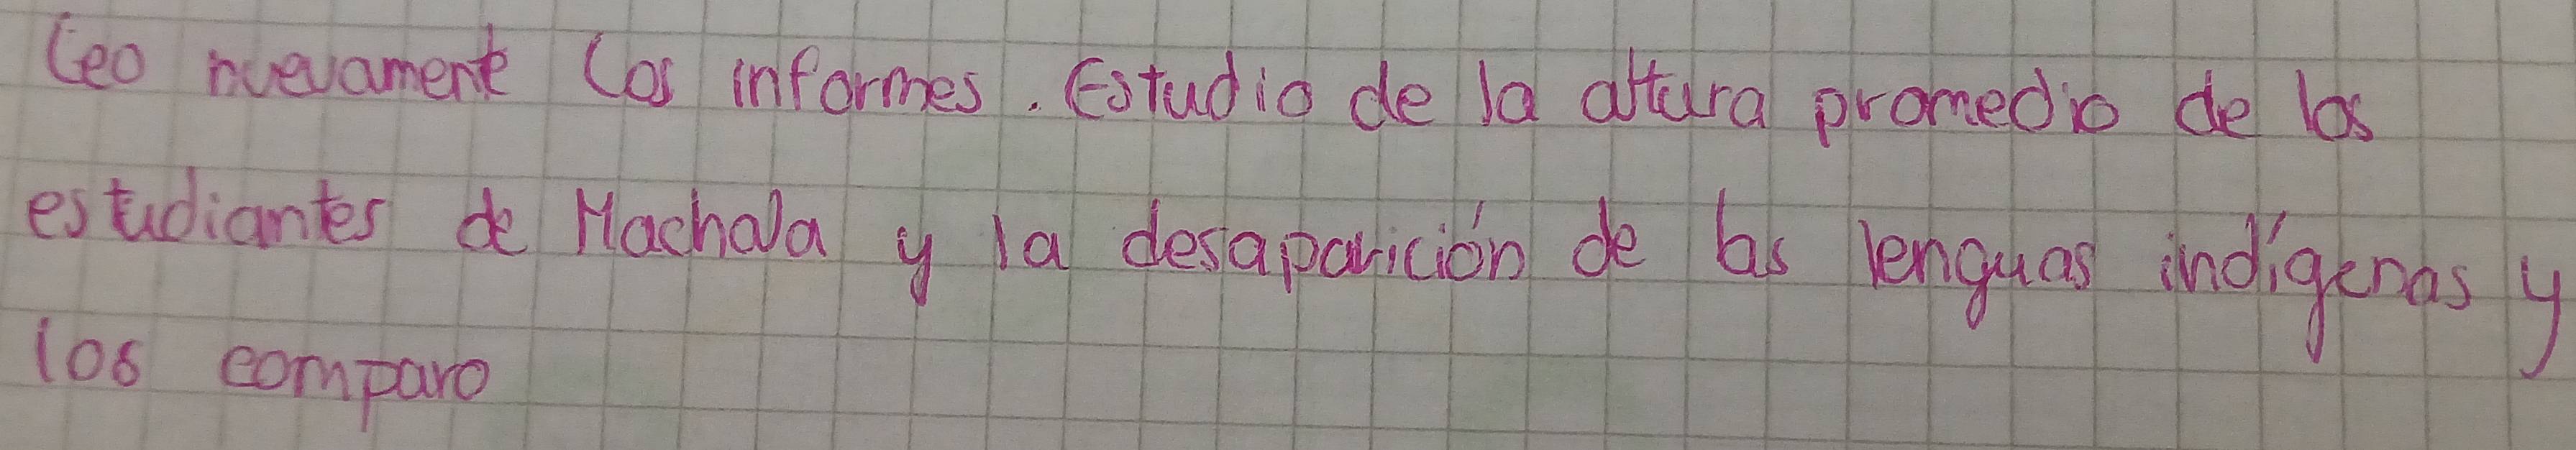 Leo nuevamente los informes. Estudio de la altura promedio de los
estudiantes de Machala y la desaparición de las lenguas indígenas y
los comparo